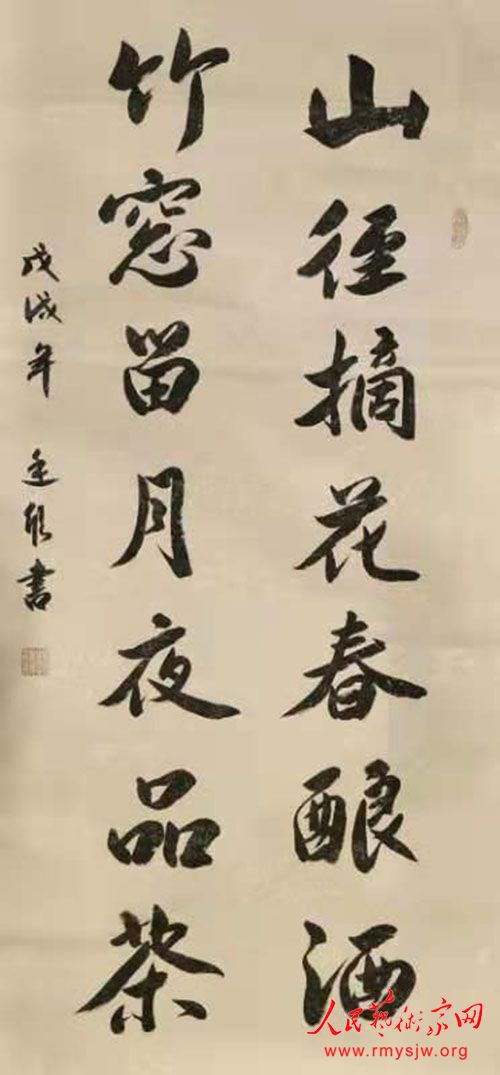 山徑摘花春酿酒
竹窓留月夜品茶
戊戌年 書
人民藝術家网
www.rmysjw.org